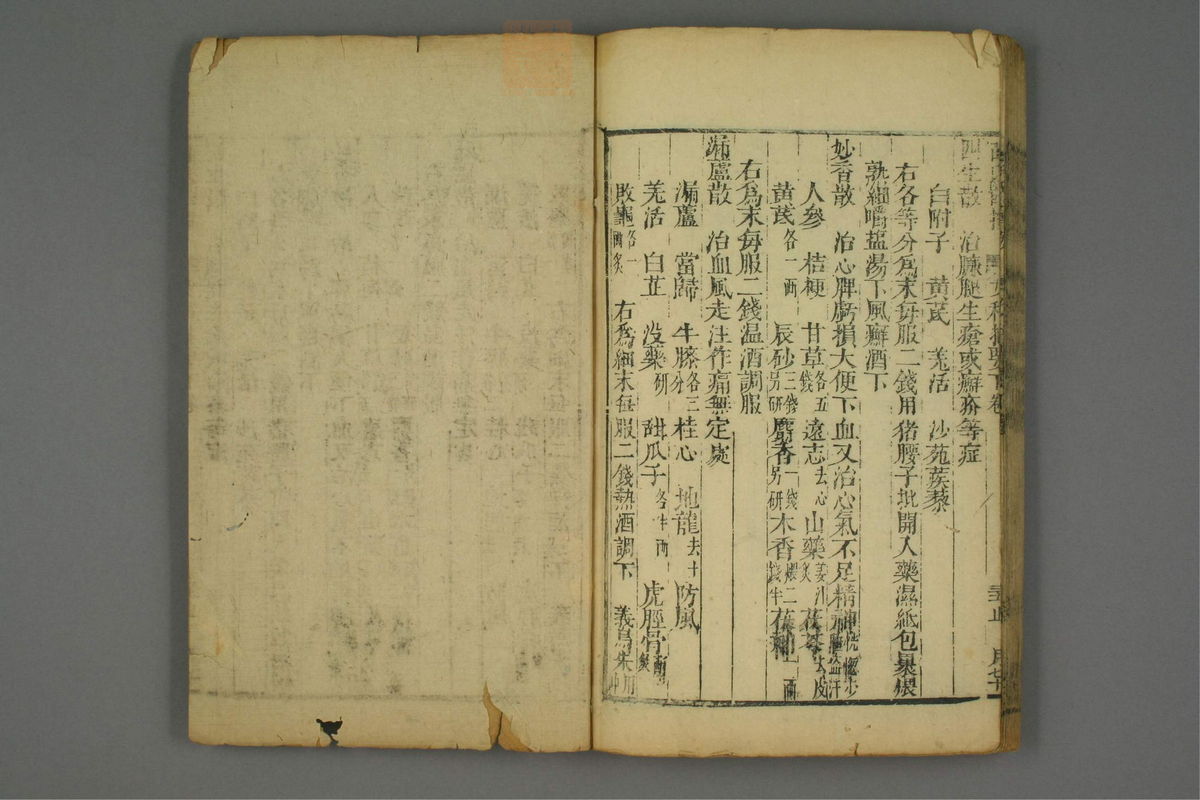 四生散　治臁腿生瘡或癬疥等症
白附子　黃芪　羌活　沙苑蒺藜
右各等分爲末每服二錢用猪腰子批開入藥濕紙包裹煨
熟細嚼盐湯下風癬酒下
妙香散　治心脾虧損大便下血又治心氣不足精神恍惚少睡盗汗
人參　桔梗　甘草各五錢　遠志去心　山藥姜汁炙　茯苓去皮
黄芪各一両　辰砂三錢另研　麝香一錢另研　木香煨二錢半　茯神一両
右爲末每服二錢温酒調服
漏蘆散　治血風走注作痛無定處
漏蘆　當歸　牛膝各三分　桂心　地龍去土　防風
羌活　白芷　没藥研　甜瓜子各半両　虎脛骨炙
敗龜各一両炙　右爲細末每服二錢熱酒調下　義烏朱